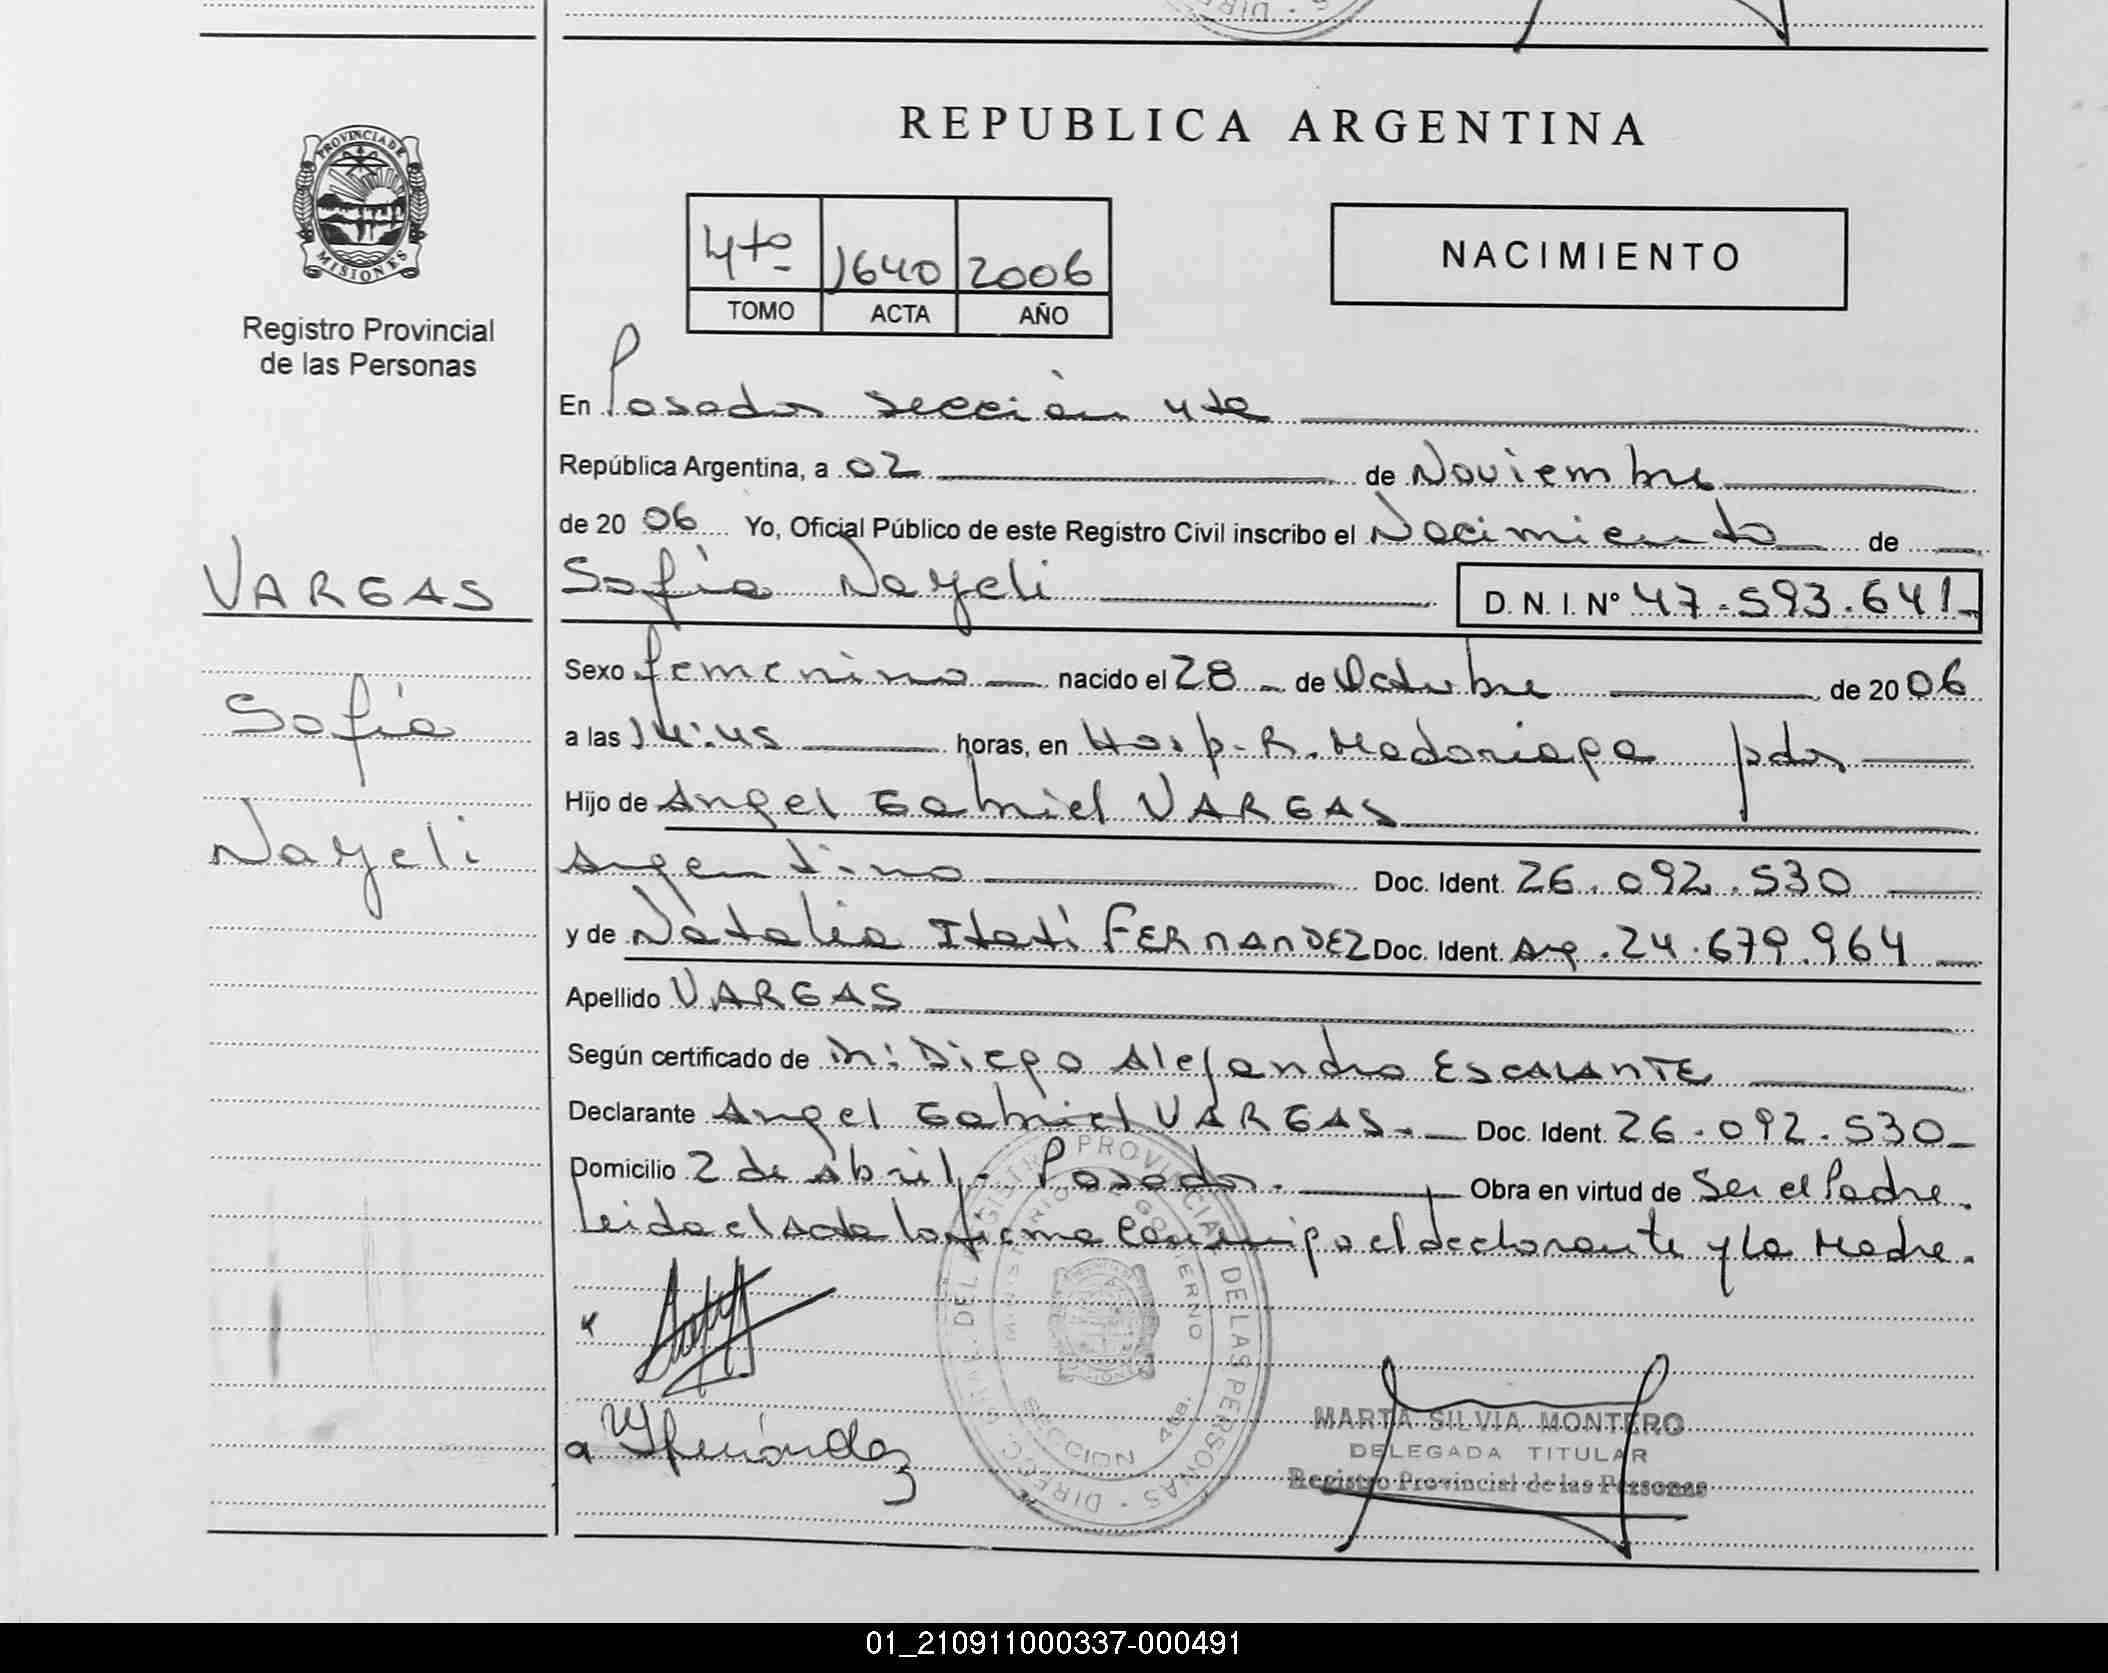 PROVINCIA DE
MISIONES
Registro Provincial
de las Personas
VARGAS
Sofía
Nayeli
REPUBLICA ARGENTINA
4to 1640 2006
TOMO ACTA AÑO
NACIMIENTO
En Posadas sección 4ta
República Argentina, a 02 de Noviembre
de 2006 Yo, Oficial Público de este Registro Civil inscribo el Nacimiento de
Sofía Nayeli D. N. I. Nº 47.593.641
Sexo femenino nacido el 28 de Octubre de 2006
a las 14:45 horas, en Hosp. R. Madariaga pdas
Hijo de Angel Gabriel VARGAS
Argentino Doc. Ident. 26.092.530
y de Natalia Itatí FERNANDEZ Doc. Ident. Arg. 24.679.964
Apellido VARGAS
Según certificado de Dr: Diego Alejandro ESCALANTE
Declarante Angel Gabriel VARGAS. Doc. Ident. 26.092.530
Domicilio 2 de Abril - Posadas. Obra en virtud de Ser el Padre.
Leida el acta la firma conmigo el declarante y la Madre.
DIRECC. GRAL. DEL REGISTRO PROVINCIAL DE LAS PERSONAS
MINISTERIO DE GOBIERNO
SECCION
MARTA SILVIA MONTERO
DELEGADA TITULAR
Registro Provincial de las Personas
01_210911000337-000491